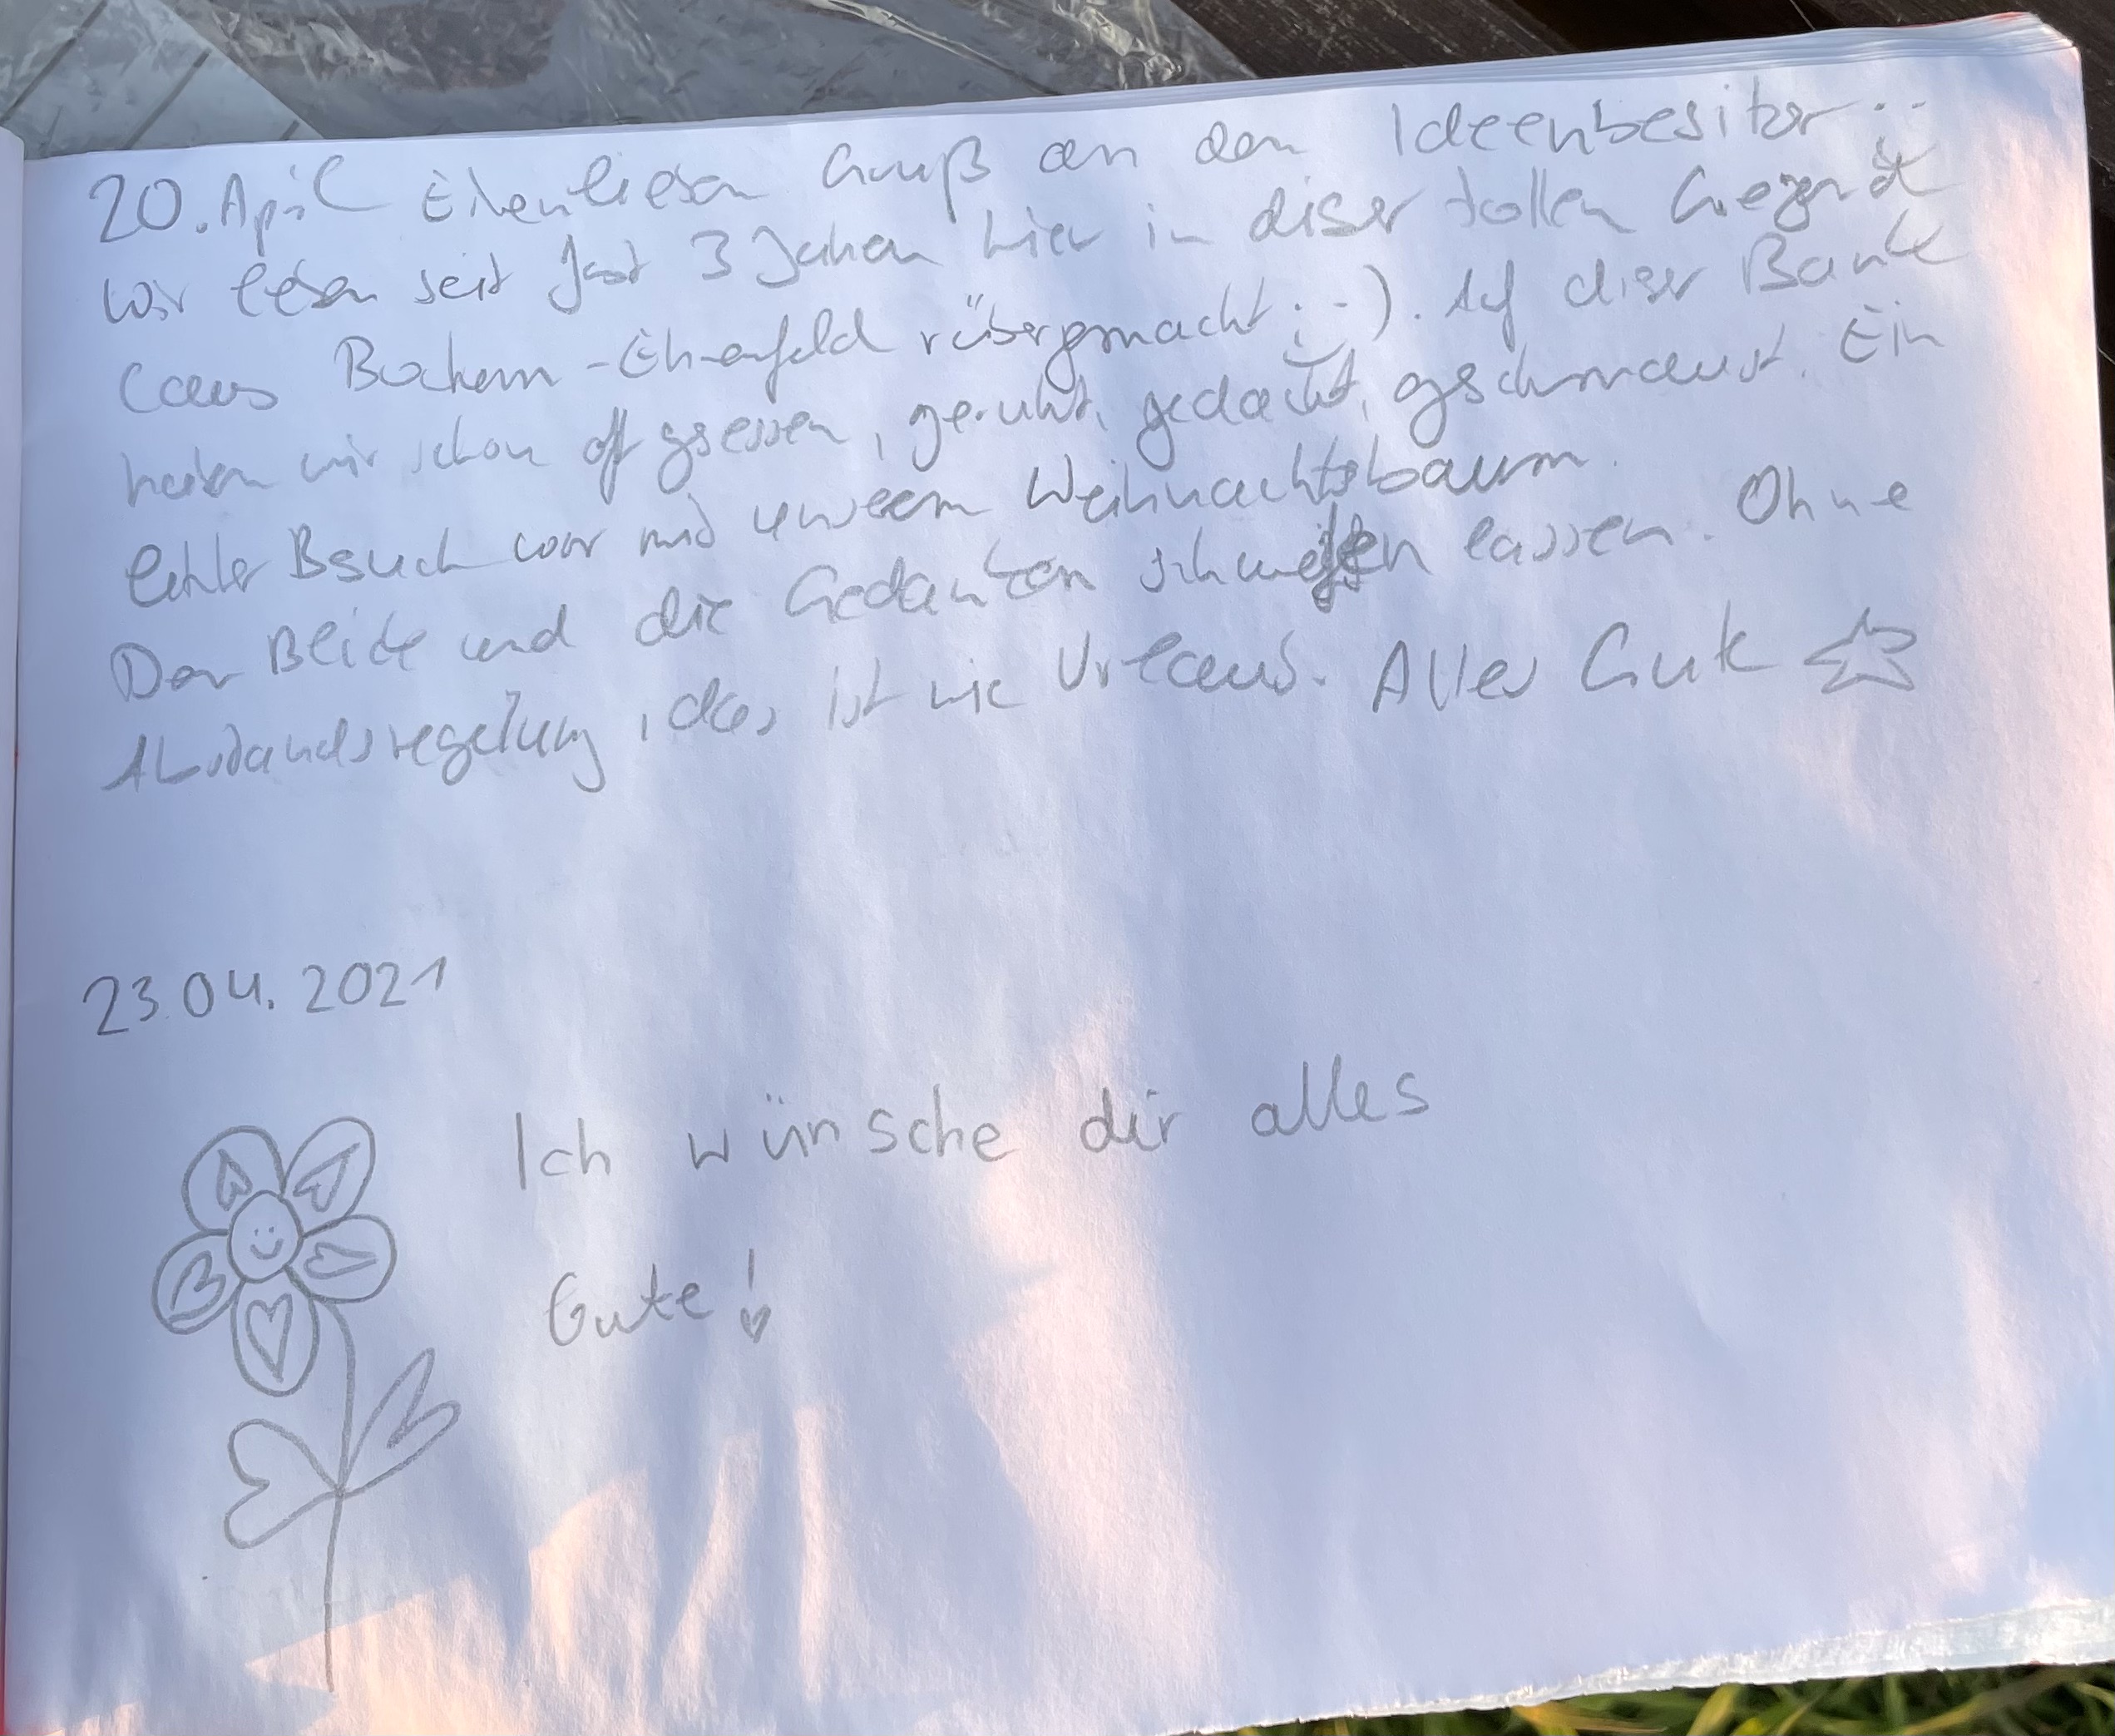 20. April Einen lieben Gruß an den Ideenbesitzer..
Wir leben seit fast 3 Jahren hier in dieser tollen Gegend
(aus Bochum-Ehrenfeld rübergemacht :-)). Auf dieser Bank
haben wir schon oft gesessen, geruht, gedacht, geschmaust. Ein
echter Besuch war mit unserem Weihnachtsbaum.
Den Blick und die Gedanken schweifen lassen. Ohne
Abstandsregelung, das ist wie Urlaub. Alles Gute
23.04.2021
Ich wünsche dir alles
Gute!